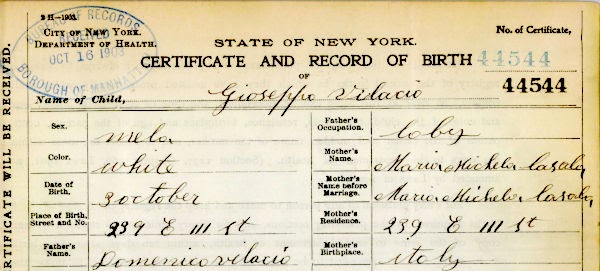 2 H—1903.
CITY OF NEW YORK.
DEPARTMENT OF HEALTH.
BUREAU OF RECORDS
RECEIVED
OCT 16 1903
BOROUGH OF MANHATT
STATE OF NEW YORK.
No. of Certificate,
CERTIFICATE AND RECORD OF BIRTH
44544
OF
44544
Name of Child, Gioseppo Vilacio
Sex. mela
Father's Occupation. loby
Color. white
Mother's Name. Maria Michela Casala
Date of Birth. 3 october
Mother's Name before Marriage. Maria Michela Casala
Place of Birth, Street and No. 239 E 111 st
Mother's Residence. 239 E 111 st
Father's Name. Domenico vilacio
Mother's Birthplace. italy
RTIFICATE WILL BE RECEIVED.